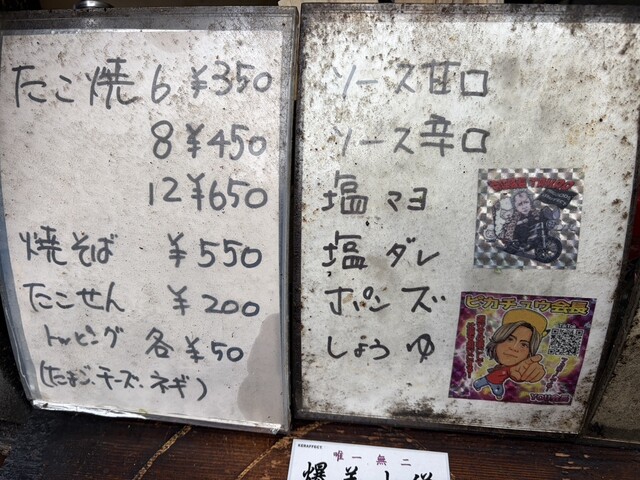 たこ焼 6 ¥350
8 ¥450
12 ¥650
焼そば ¥550
たこせん ¥200
トッピング 各¥50
(たまご、チーズ、ネギ)
ソース甘口
ソース辛口
塩マヨ
塩ダレ
ポンズ
しょうゆ
ピカチュウ会長
唯一無二